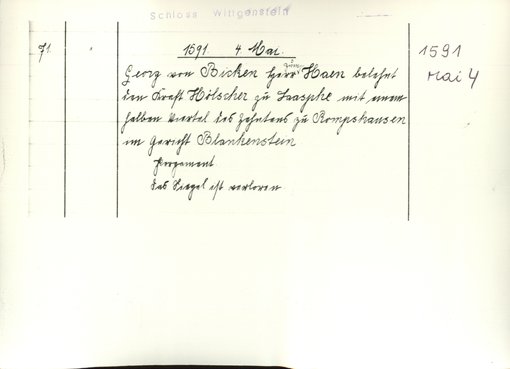 Schloss Wittgenstein
71.
1591. 4. Mai.
Georg von Bicken Herr zum Haen belehnt
den Kraft Hölscher zu Laasphe mit einem
halben Viertel des Zehntens zu Rompshausen
im Gericht Blankenstein
Pergament
das Siegel ist verloren
1591
Mai 4